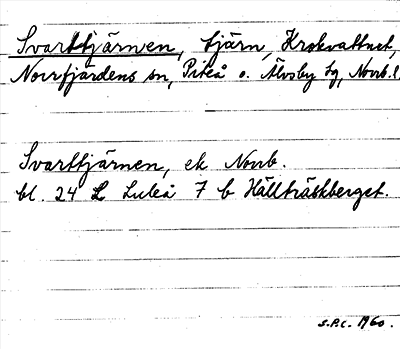 Svarttjärnen, tjärn, Krokvattnet,
Norrfjärdens sn, Piteå o. Älvsby tg, Norrb. l.
Svarttjärnen, ek Norrb.
bl. 24 L Luleå 7 b Hällträskberget.
S.P.C. 1960.